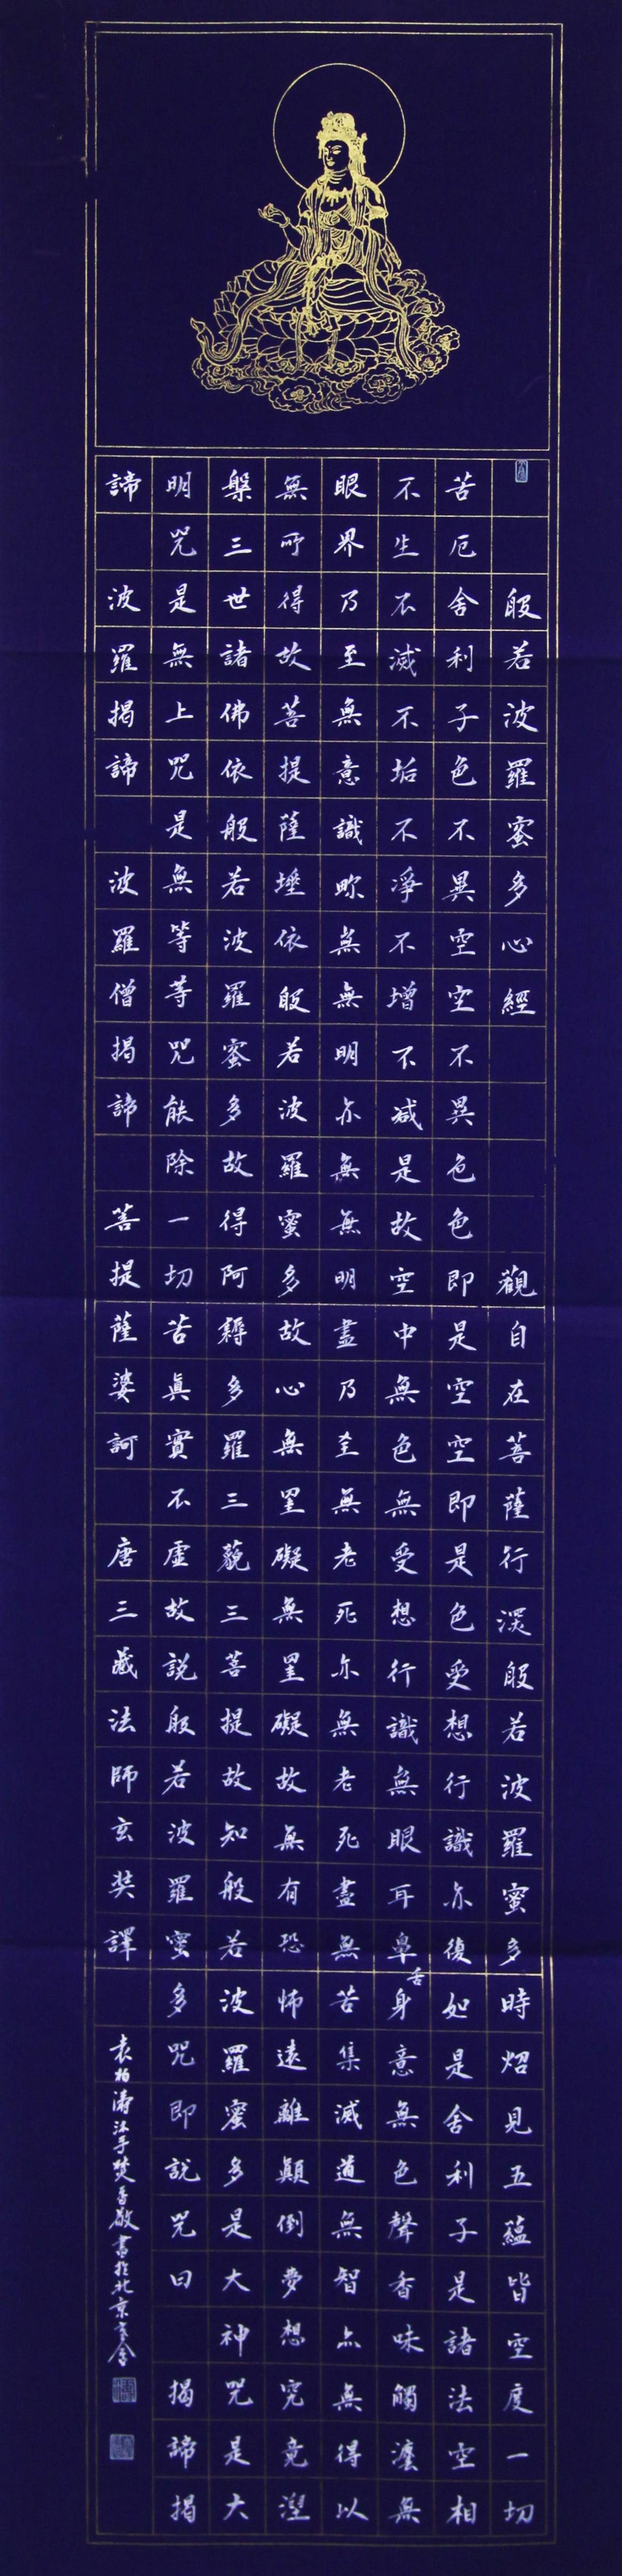 般若波羅蜜多心經 觀自在菩薩行深般若波羅蜜多時炤見五蘊皆空度一切
苦厄舍利子色不異空空不異色色即是空空即是色受想行識亦復如是舍利子是諸法空相
不生不滅不垢不淨不增不減是故空中無色無受想行識無眼耳鼻舌身意無色聲香味觸灋無
眼界乃至無意識畍無無明亦無無明盡乃至無老死亦無老死盡無苦集滅道無智亦無得以
無所得故菩提薩埵依般若波羅蜜多故心無罣礙無罣礙故無有恐怖遠離顛倒夢想究竟涅
槃三世諸佛依般若波羅蜜多故得阿耨多羅三藐三菩提故知般若波羅蜜多是大神咒是大
明咒是無上咒是無等等咒能除一切苦真實不虛故說般若波羅蜜多咒即說咒曰 揭諦揭
諦 波羅揭諦 波羅僧揭諦 菩提薩婆訶 唐三藏法師玄奘譯
袁柏濤沐手焚香敬書於北京寓舍